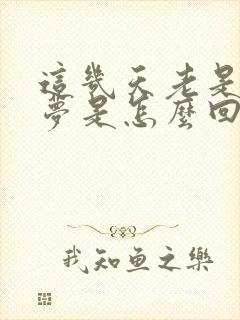 這幾天老是
夢是怎麼回
我知魚之樂